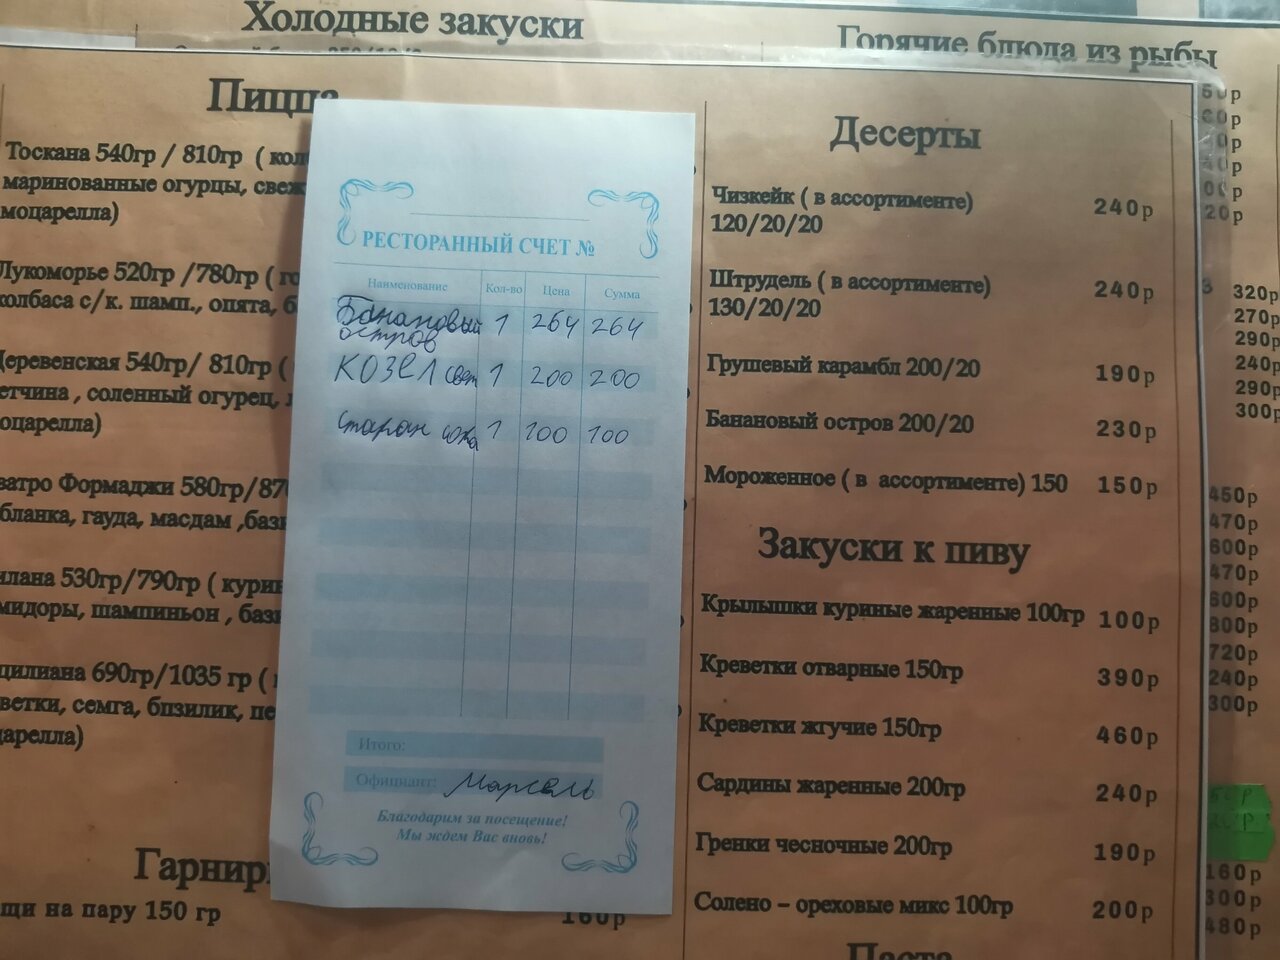 Холодные закуски
Горячие блюда из рыбы
Пицца
Тоскана 540гр / 810гр (
маринованные огурцы,
моцарелла)
Лукоморье 520гр /780гр (
колбаса с/к. шамп., опята,
540гр/ 810гр (
, соленный огурец,
Формаджи 580гр/
бланка, гауда, масдам ,
530гр/790гр (
шампиньон ,
690гр/1035 гр (
семга,
Гарниры
на пару 150 гр
160р
РЕСТОРАННЫЙ СЧЕТ №
Наименование Кол-во Цена Сумма
Банановый остров 1 264 264
КОЗЕЛ свет 1 200 200
1 100 100
Итого:
Официант: Марсель
Благодарим за посещение!
Мы ждем Вас вновь!
Десерты
Чизкейк ( в ассортименте) 240р
120/20/20
Штрудель ( в ассортименте) 240р
130/20/20
Грушевый карамбл 200/20 190р
Банановый остров 200/20 230р
Мороженное ( в ассортименте) 150 150р
Закуски к пиву
Крылышки куриные жаренные 100гр 100р
Креветки отварные 150гр 390р
Креветки жгучие 150гр 460р
Сардины жаренные 200гр 240р
Гренки чесночные 200гр 190р
Солено – ореховые микс 100гр 200р
Паста
320р
270р
290р
240р
290р
300р
450р
470р
600р
470р
600р
800р
720р
240р
300р
160р
300р
480р